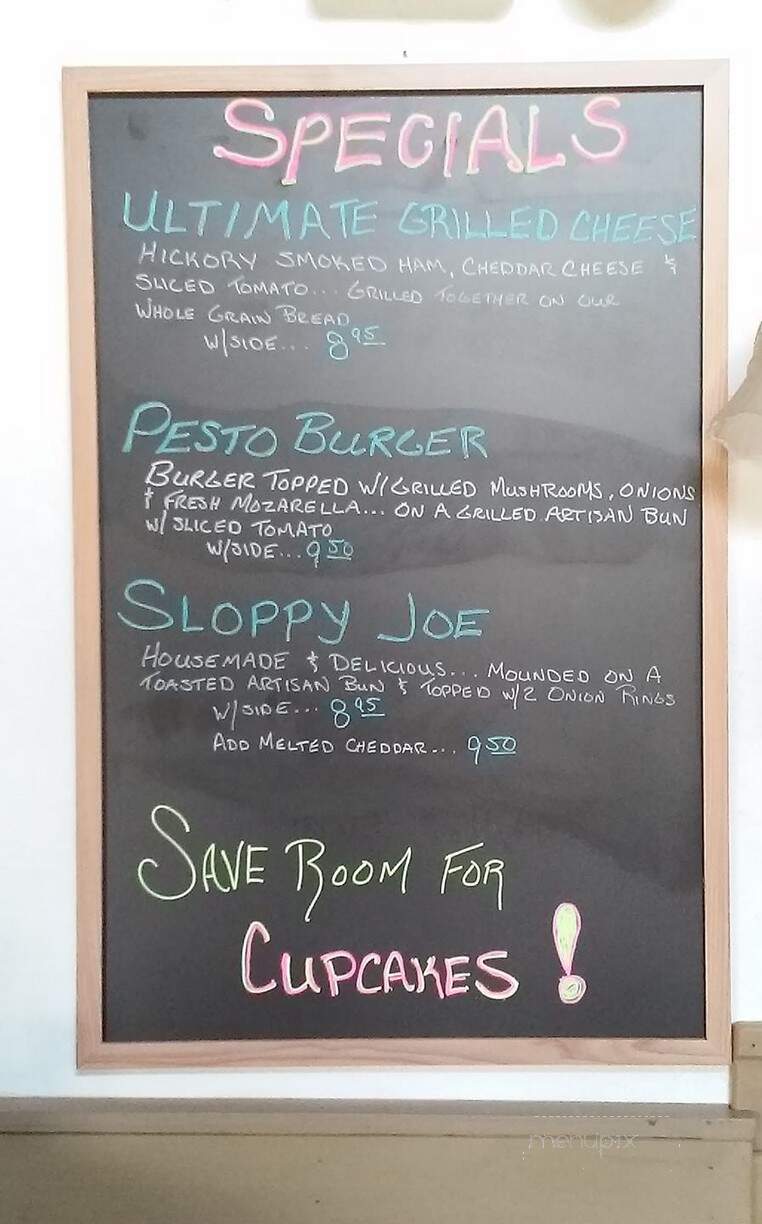 SPECIALS
ULTIMATE GRILLED CHEESE
HICKORY SMOKED HAM, CHEDDAR CHEESE &
SLICED TOMATO... GRILLED TOGETHER ON OUR
WHOLE GRAIN BREAD
W/SIDE... 8 95
PESTO BURGER
BURGER TOPPED W/GRILLED MUSHROOMS, ONIONS
& FRESH MOZARELLA... ON A GRILLED ARTISAN BUN
W/ SLICED TOMATO
W/SIDE... 9 50
SLOPPY JOE
HOUSEMADE & DELICIOUS... MOUNDED ON A
TOASTED ARTISAN BUN & TOPPED W/2 ONION RINGS
W/SIDE... 8 95
ADD MELTED CHEDDAR... 9 50
SAVE ROOM FOR
CUPCAKES!
menupix